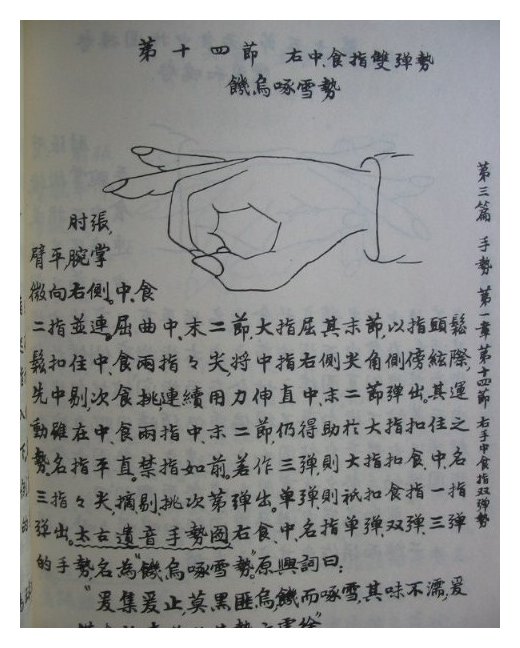 第十四節 右中、食指雙弹勢
饑烏啄雪勢
肘張,
臂平,腕掌
微向右側。中、食
二指並連。屈曲中、末二節,大指屈其末節,以指頭鬆
鬆扣住中、食兩指々尖,將中指右側尖角側傍絃際,
先中剔,次食挑,連續用力伸直中、末二節弹出。其運
動雖在中、食兩指中、末二節,仍得助於大指扣住之
勢。名指平直。禁指如前。若作三弹,則大指扣食、中、名
三指々尖,摘剔挑次第弹出。单弹,則祇扣食指一指
弹出。太古遺音手勢圖右食、中、名指单弹、双弹、三弹
的手勢,名為“饑烏啄雪勢”。原興詞曰:
“爰集爰止,莫黑匪烏,饑而啄雪,其味不濡,爰
第三篇 手勢 第一章 第十四節 右手中食指双弹勢